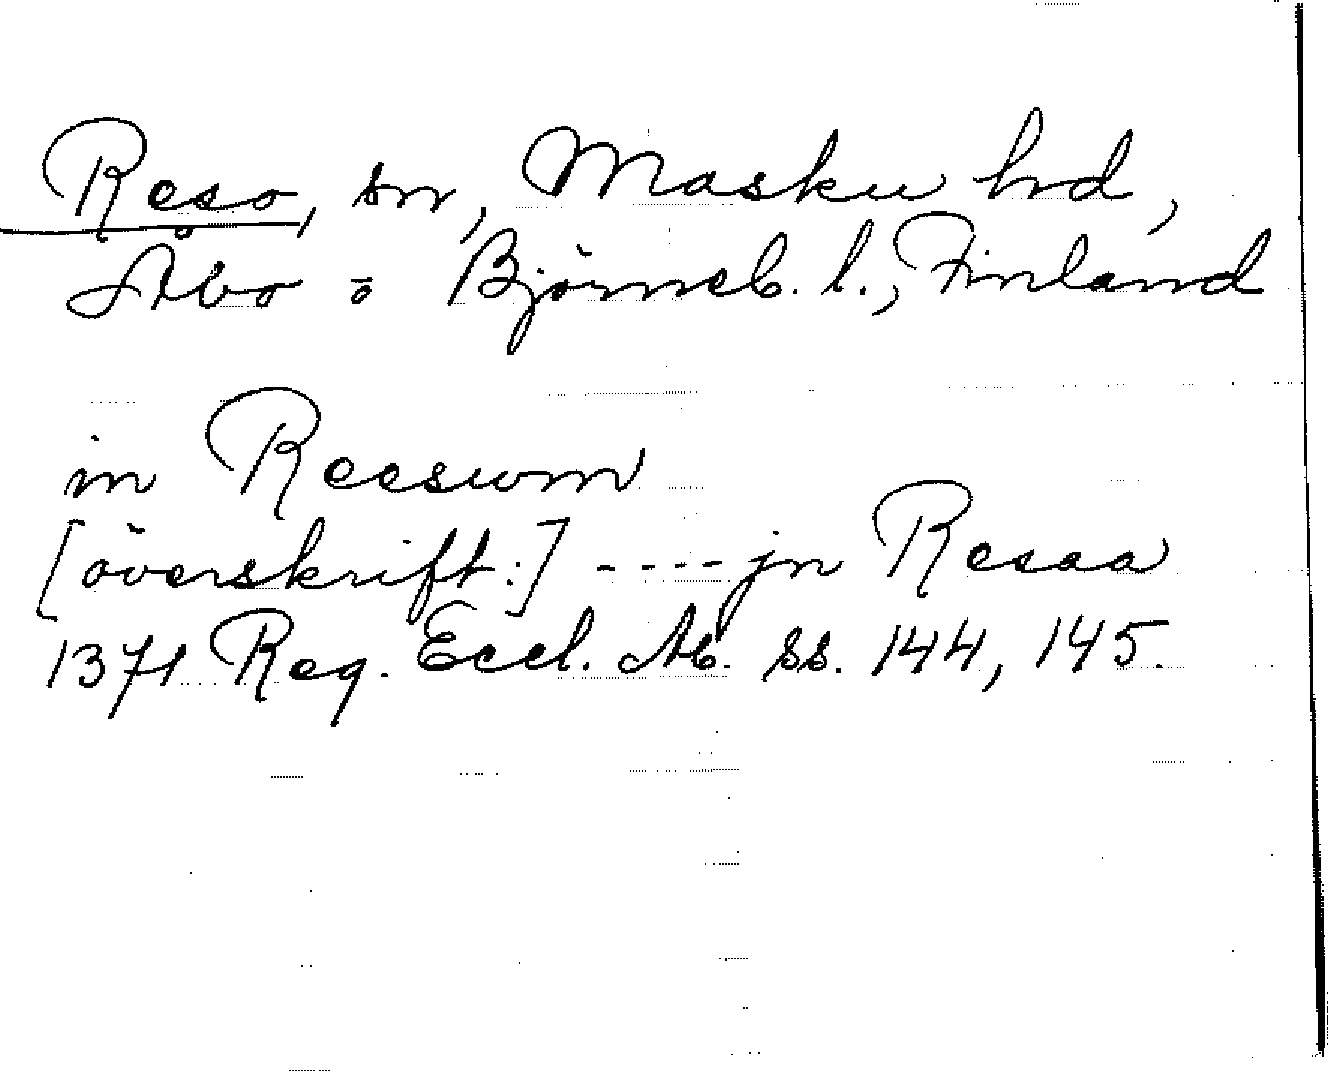 Reso, sn, Masku hd,
Åbo o Björneb. l., Finland
in Reeswm
[överskrift:] ---- jn Resaa
1371 Reg. Eccl. Ab. ss. 144, 145.